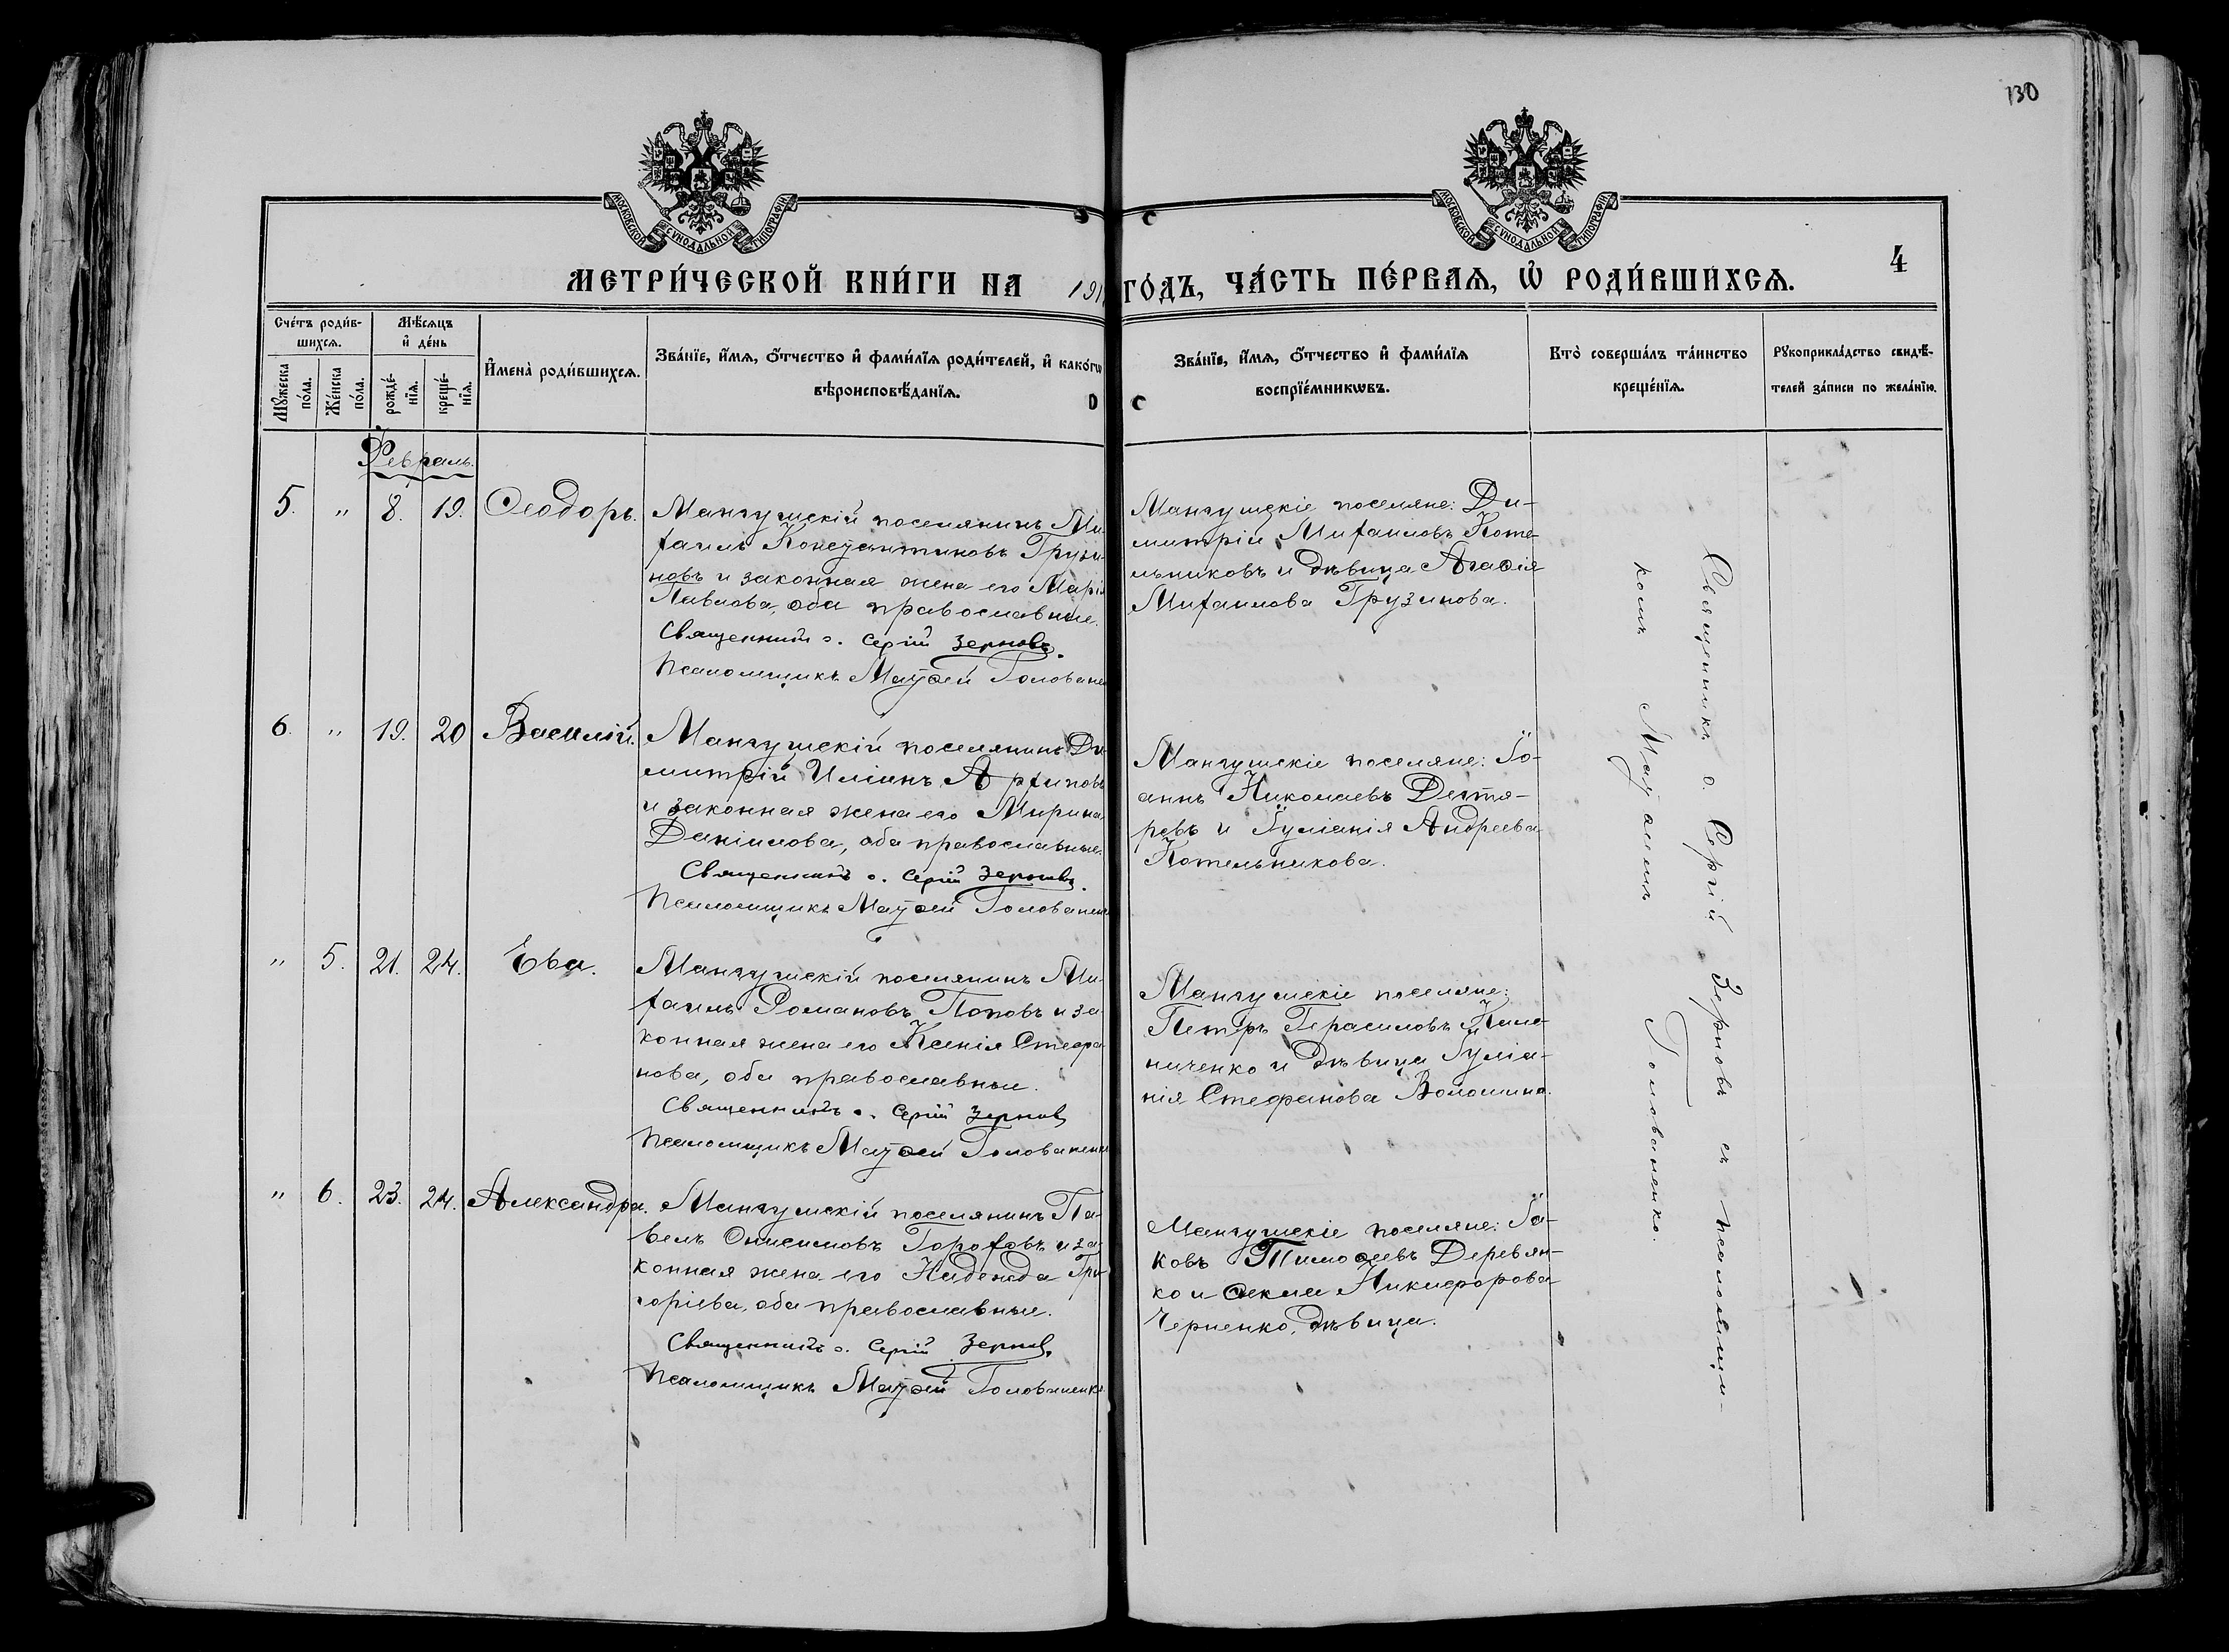 130
МОСКОВСКОЙ СѴНОДАЛЬНОЙ ТИПОГРАФІИ
МОСКОВСКОЙ СѴНОДАЛЬНОЙ ТИПОГРАФІИ
4
МЕТРИ́ЧЕСКОЙ КНИ́ГИ НА 191 ГО́ДЪ, ЧА́СТЬ ПЕ́РВАѦ, Ѡ҆ РОДИ́ВШИХСѦ.
Сче́тъ роди́в-
шихсѧ.
Мꙋ́жеска
по́ла.
Же́нска
по́ла.
Мѣ́сѧцъ
и҆ де́нь
рожде́-
нїѧ.
креще́-
нїѧ.
И҆мена̀ роди́вшихсѧ.
Зва́нїе, и҆́мѧ, ѻ҆́тчество и҆ фами́лїѧ роди́телей, и҆ како́гѡ
вѣроисповѣ́данїѧ.
Зва́нїе, и҆́мѧ, ѻ҆́тчество и҆ фами́лїѧ
воспрїе́мникѡвъ.
Кто̀ соверша́лъ та́инство
креще́нїѧ.
Рꙋкоприкла́дство свидѣ́-
телей за́писи по жела́нїю.
Февраль.
5. " 8. 19. Ѳеодоръ.
Мангушскій поселянинъ Ми
хаилъ Константиновъ Грузи
новъ и законная жена его Марія
Павлова, оба православные.
Священникъ о. Сергій Зерновъ.
Псаломщикъ Матѳей Голованен
Мангушскіе поселяне: Ди-
митрій Михаиловъ Коте-
льниковъ и дѣвица Агаѳія
Михаилова Грузинова.
6. " 19. 20 Василій.
Мангушскій поселянинъ Ди
митрій Иліинъ Архиповъ
и законная жена его Мирина
Даніилова, оба православные.
Священникъ о. Сергій Зерновъ.
Псаломщикъ Матѳей Голованен
Мангушскіе поселяне: Іо-
аннъ Николаевъ Дегтя-
ревъ и Іуліанія Андреева
Котельникова.
" 5. 21. 24. Ева.
Мангушскій поселянинъ Ми-
хаилъ Романовъ Поповъ и за
конная жена его Ксенія Стефа
нова, оба православные.
Священникъ о. Сергій Зернов
Псаломщикъ Матѳей Голованенк
Мангушскіе поселяне:
Петръ Герасимовъ
ниченко и дѣвица Іуліа-
нія Стефанова Волошина.
" 6. 23. 24. Александра.
Мангушскій поселянинъ Па-
велъ Онисимовъ Гороховъ и за-
конная жена его Надежда Гри
горіева, оба православные.
Священникъ о. Сергій Зернов.
Псаломщикъ Матѳей Голованенко
Мангушскіе поселяне: Іа-
ковъ Тимоѳеевъ Деревян-
ко и Ѳекла Никифорова
Черненко, дѣвица.
Священникъ о. Сергій Зерновъ съ псаломщи-
комъ Матѳеемъ Голованенко.